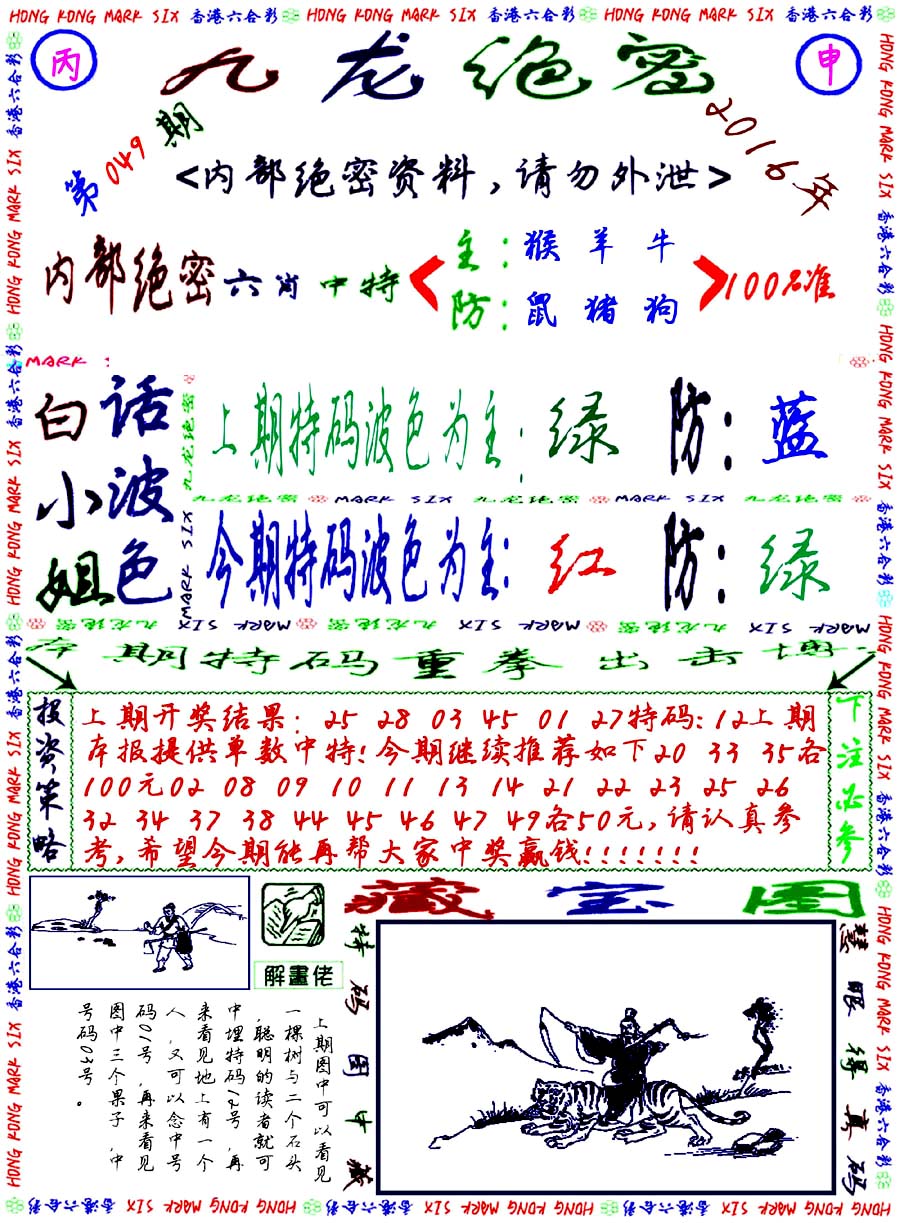 HONG KONG MARK SIX 香港六合彩 HONG KONG MARK SIX 香港六合彩 HONG KONG MARK SIX 香港六合彩
丙 九龙绝密 申
第049期 2016年
<内部绝密资料,请勿外泄>
内部绝密六肖中特 主:猴羊牛 100%准
防:鼠猪狗
MARK :
白话小波姐色
上期特码波色为主:绿 防:蓝
九龙绝密 MARK SIX 九龙绝密 MARK SIX 九龙绝密
今期特码波色为主:红 防:绿
MARK SIX 九龙绝密 MARK SIX 九龙绝密 MARK SIX 九龙绝密 MARK SIX
本期特码重拳出击博
投资策略
上期开奖结果: 25 28 03 45 01 27特码:12上期
本报提供单数中特!今期继续推荐如下20 33 35各
100元02 08 09 10 11 13 14 21 22 23 25 26
32 34 37 38 44 45 46 47 49各50元,请认真参
考,希望今期能再帮大家中奖赢钱!!!!!!!
下注必参
藏宝图
解畫佬
上期图中可以看见
一棵树与二个石头
,聪明的读者就可
中埋特码12号,再
来看见地上有一个
人,又可以念中号
码01号,再来看见
图中三个果子,中
号码03号。
特码图中藏
慧眼得真码
HONG KONG MARK SIX 香港六合彩 HONG KONG MARK SIX 香港六合彩 HONG KONG MARK SIX 香港六合彩